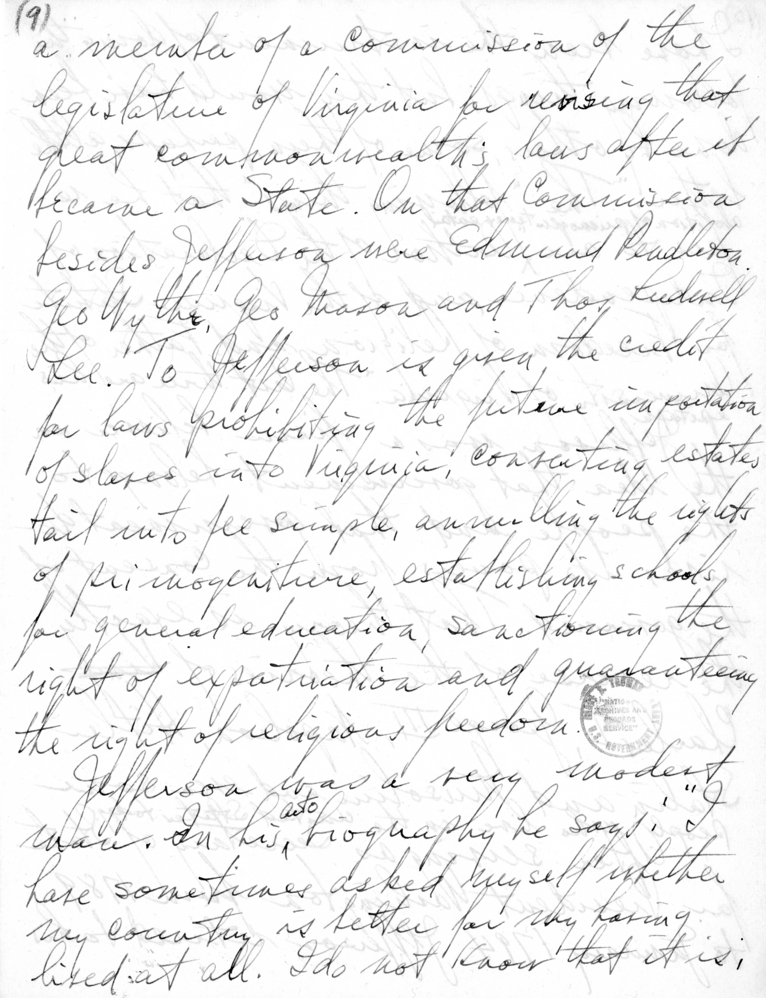 (9)
a member of a commission of the
legislature of Virginia for revising that
great commonwealth's laws after it
became a State. On that Commission
besides Jefferson were Edmund Pendleton.
Geo Wythe, Geo Mason and Thos Ludwell
Lee. To Jefferson is given the credit
for laws prohibiting the future importation
of slaves into Virginia, converting estates
tail into fee simple, annulling the rights
of primogeniture, establishing schools
for general education, sanctioning the
right of expatriation and guaranteeing
the right of religious freedom.
Jefferson was a very modest
auto
man. In his, biography he says: "I
have sometimes asked myself whether
my country is better for my having
lived at all. I do not know that it is;
HARRY S. TRUMAN LIBRARY
NATIONAL
ARCHIVES AND
RECORDS
SERVICE
U.S. GOVERNMENT